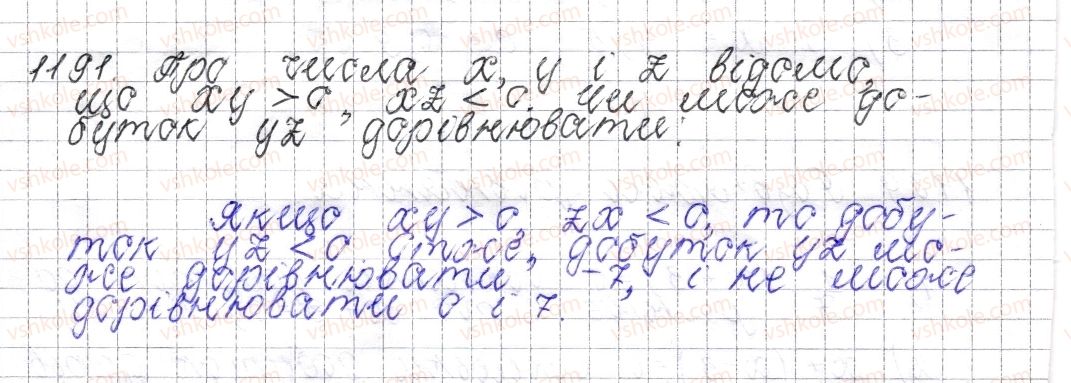 1191. Про числа x, y і z відомо,
що xy > 0, xz < 0. Чи може до-
буток yz дорівнювати:
Якщо xy > 0, zx < 0, то добу-
ток yz < 0. Отже, добуток yz мо-
же дорівнювати -7, і не може
дорівнювати 0 і 7.